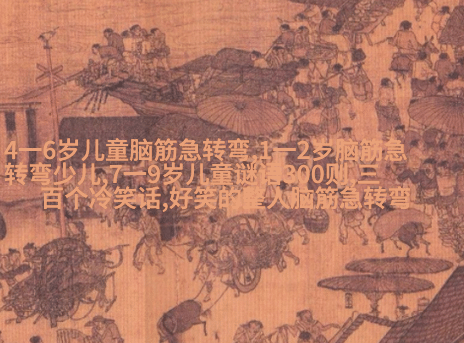 4一6岁儿童脑筋急转弯,1一2岁脑筋急
转弯少儿,7一9岁儿童谜语300则,三
百个冷笑话,好笑的整人脑筋急转弯